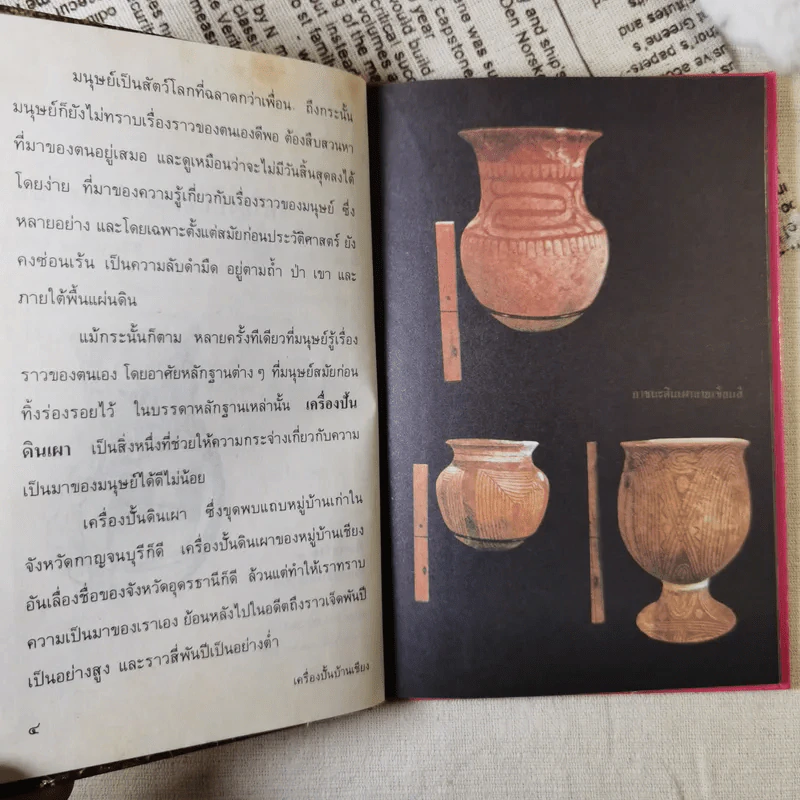 มนุษย์เป็นสัตว์โลกที่ฉลาดกว่าเพื่อน ถึงกระนั้น
มนุษย์ก็ยังไม่ทราบเรื่องราวของตนเองดีพอ ต้องสืบสวนหา
ที่มาของตนอยู่เสมอ และดูเหมือนว่าจะไม่มีวันสิ้นสุดลงได้
โดยง่าย ที่มาของความรู้เกี่ยวกับเรื่องราวของมนุษย์ ซึ่ง
หลายอย่าง และโดยเฉพาะตั้งแต่สมัยก่อนประวัติศาสตร์ ยัง
คงซ่อนเร้น เป็นความลับดำมืด อยู่ตามถ้ำ ป่า เขา และ
ภายใต้พื้นแผ่นดิน
แม้กระนั้นก็ตาม หลายครั้งทีเดียวที่มนุษย์รู้เรื่อง
ราวของตนเอง โดยอาศัยหลักฐานต่าง ๆ ที่มนุษย์สมัยก่อน
ทิ้งร่องรอยไว้ ในบรรดาหลักฐานเหล่านั้น เครื่องปั้น
ดินเผา เป็นสิ่งหนึ่งที่ช่วยให้ความกระจ่างเกี่ยวกับความ
เป็นมาของมนุษย์ได้ดีไม่น้อย
เครื่องปั้นดินเผา ซึ่งขุดพบแถบหมู่บ้านเก่าใน
จังหวัดกาญจนบุรีก็ดี เครื่องปั้นดินเผาของหมู่บ้านเชียง
อันเลื่องชื่อของจังหวัดอุดรธานีก็ดี ล้วนแต่ทำให้เราทราบ
ความเป็นมาของเราเอง ย้อนหลังไปในอดีตถึงราวเจ็ดพันปี
เป็นอย่างสูง และราวสี่พันปีเป็นอย่างต่ำ
เครื่องปั้นบ้านเชียง
๔
ภาชนะดินเผาลายเขียนสี